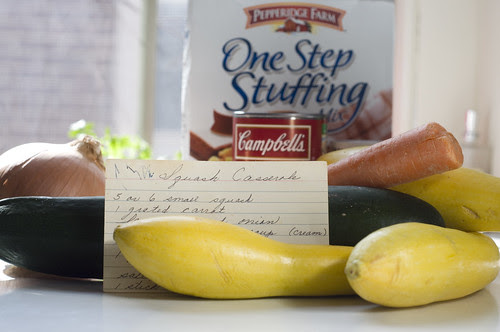 PEPPERIDGE FARM
One Step
Stuffing
Mix
Campbell's
Squash Casserole
5 or 6 small squash
1 grated carrot
onion
soup (cream)
1 stick